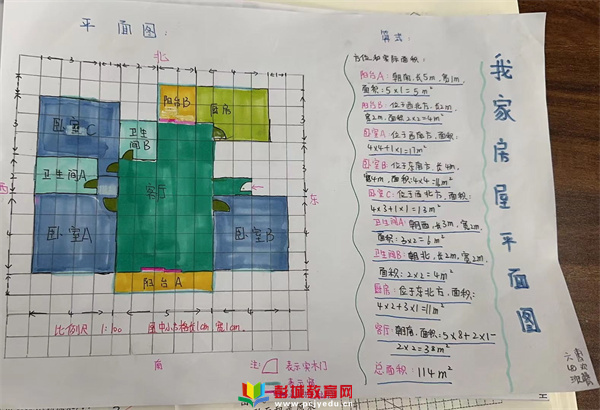 平面图:
北
阳台B
厨房
卧室C
卫生
间B
卫生间A
客厅
西
东
卧室A
卧室B
阳台A
比例尺 1:100 图中小方格长1cm 宽1cm.
南
注:
表示实木门
表示窗
算式:
方位和实际面积:
阳台A: 朝南,长5m,宽1m,
面积:5×1=5m²
阳台B: 位于西北方,长2m,
宽2m,面积2×2=4m²
卧室A: 位于西南方,面积:
4×4+1×1=17m²
卧室B: 位于东南方,长4m,
宽4m,面积:4×4=16m²
卧室C: 位于西北方,面积:
4×3+1×1=13m²
卫生间A: 朝西,长3m,宽2m,
面积:3×2=6m²
卫生间B: 朝北,长2m,宽2m,
面积:2×2=4m²
厨房: 位于东北方,面积:
4×2+3×1=11m²
客厅: 朝南,面积:5×8+2×1-
2×2=38m²
总面积: 114m²
我家房屋平面图
六四班
彭城教育网
www.pcjyedu.cn